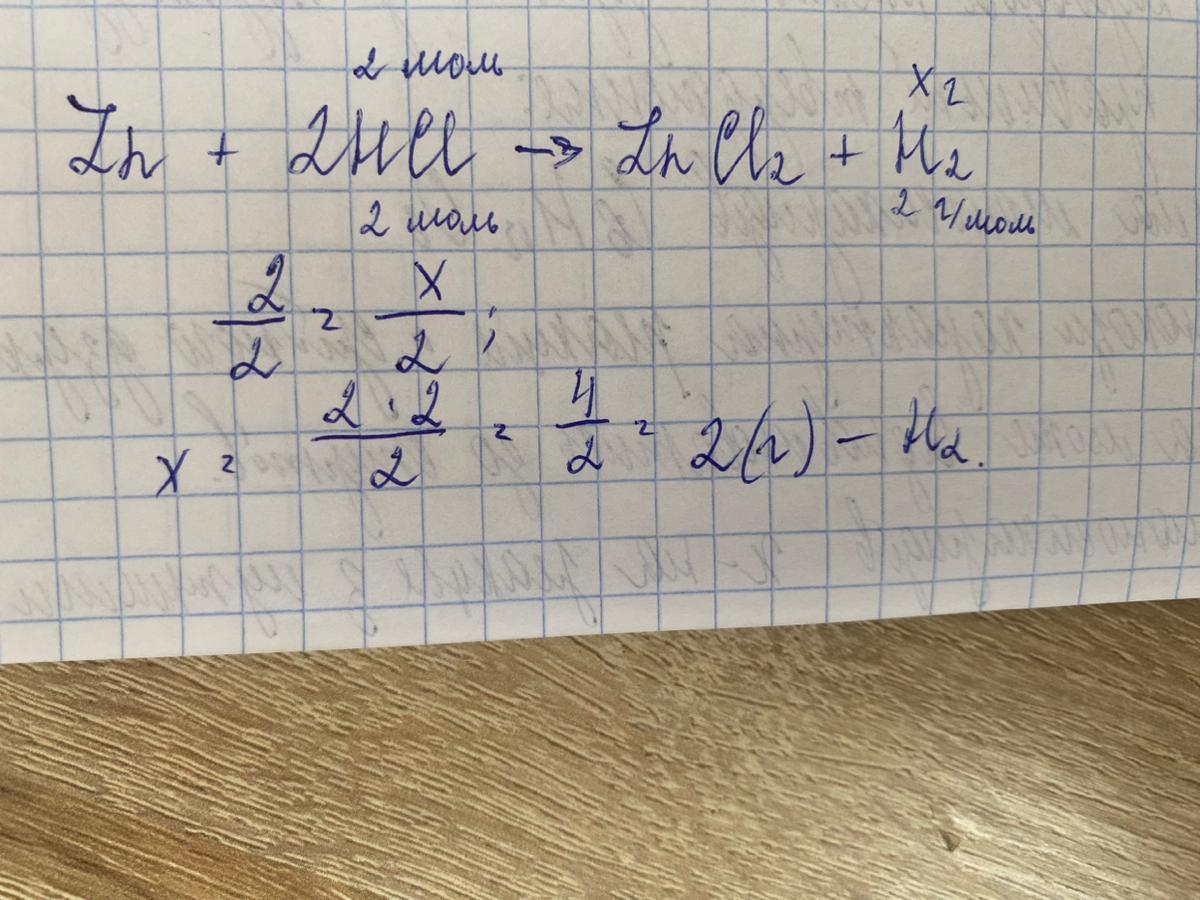 2 моль x г
Zn + 2HCl → ZnCl₂ + H₂
2 моль 2 г/моль
2/2 = x/2;
x = 2 · 2/2 = 4/2 = 2(г) – H₂.